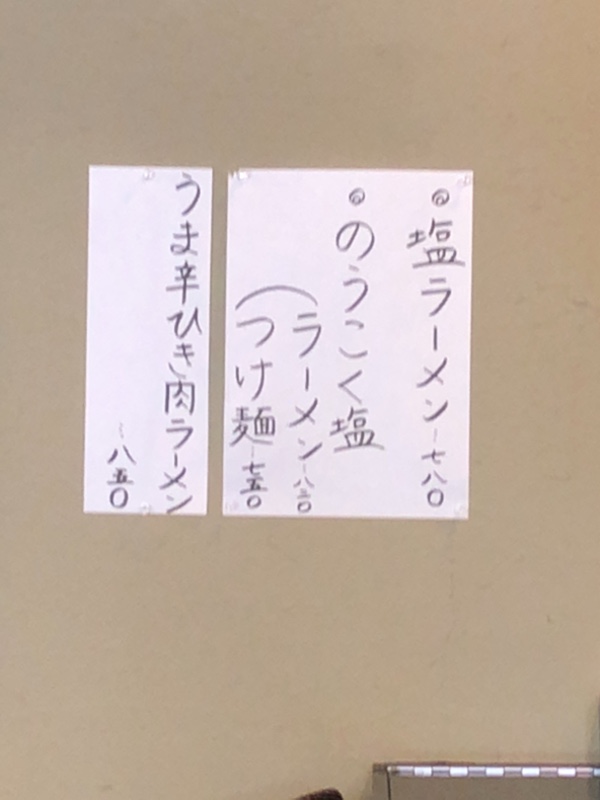 ◎塩ラーメン…七八〇
◎のうこく塩
ラーメン…八三〇
つけ麺…七五〇
うま辛ひき肉ラーメン
…八五〇